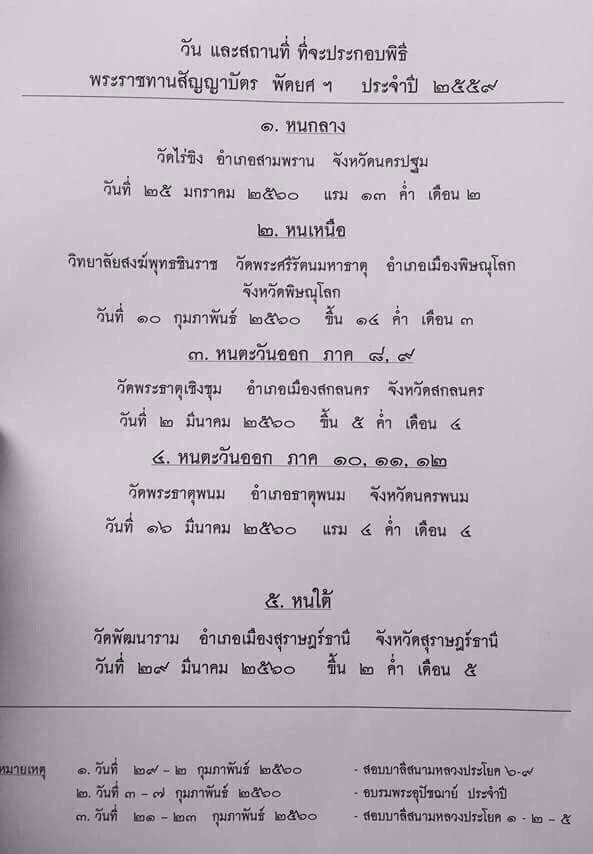 วัน และสถานที่ ที่จะประกอบพิธี
พระราชทานสัญญาบัตร พัดยศ ฯ ประจำปี ๒๕๕๙
๑. หนกลาง
วัดไร่ขิง อำเภอสามพราน จังหวัดนครปฐม
วันที่ ๒๕ มกราคม ๒๕๖๐ แรม ๑๓ ค่ำ เดือน ๒
๒. หนเหนือ
วิทยาลัยสงฆ์พุทธชินราช วัดพระศรีรัตนมหาธาตุ อำเภอเมืองพิษณุโลก
จังหวัดพิษณุโลก
วันที่ ๑๐ กุมภาพันธ์ ๒๕๖๐ ขึ้น ๑๔ ค่ำ เดือน ๓
๓. หนตะวันออก ภาค ๘, ๙
วัดพระธาตุเชิงชุม อำเภอเมืองสกลนคร จังหวัดสกลนคร
วันที่ ๒ มีนาคม ๒๕๖๐ ขึ้น ๕ ค่ำ เดือน ๔
๔. หนตะวันออก ภาค ๑๐, ๑๑, ๑๒
วัดพระธาตุพนม อำเภอธาตุพนม จังหวัดนครพนม
วันที่ ๑๖ มีนาคม ๒๕๖๐ แรม ๔ ค่ำ เดือน ๔
๕. หนใต้
วัดพัฒนาราม อำเภอเมืองสุราษฎร์ธานี จังหวัดสุราษฎร์ธานี
วันที่ ๒๙ มีนาคม ๒๕๖๐ ขึ้น ๒ ค่ำ เดือน ๕
หมายเหตุ ๑. วันที่ ๒๙ - ๒ กุมภาพันธ์ ๒๕๖๐ - สอบบาลีสนามหลวงประโยค ๖-๙
๒. วันที่ ๓ - ๗ กุมภาพันธ์ ๒๕๖๐ - อบรมพระอุปัชฌาย์ ประจำปี
๓. วันที่ ๒๑ - ๒๓ กุมภาพันธ์ ๒๕๖๐ - สอบบาลีสนามหลวงประโยค ๑ - ๒ - ๕